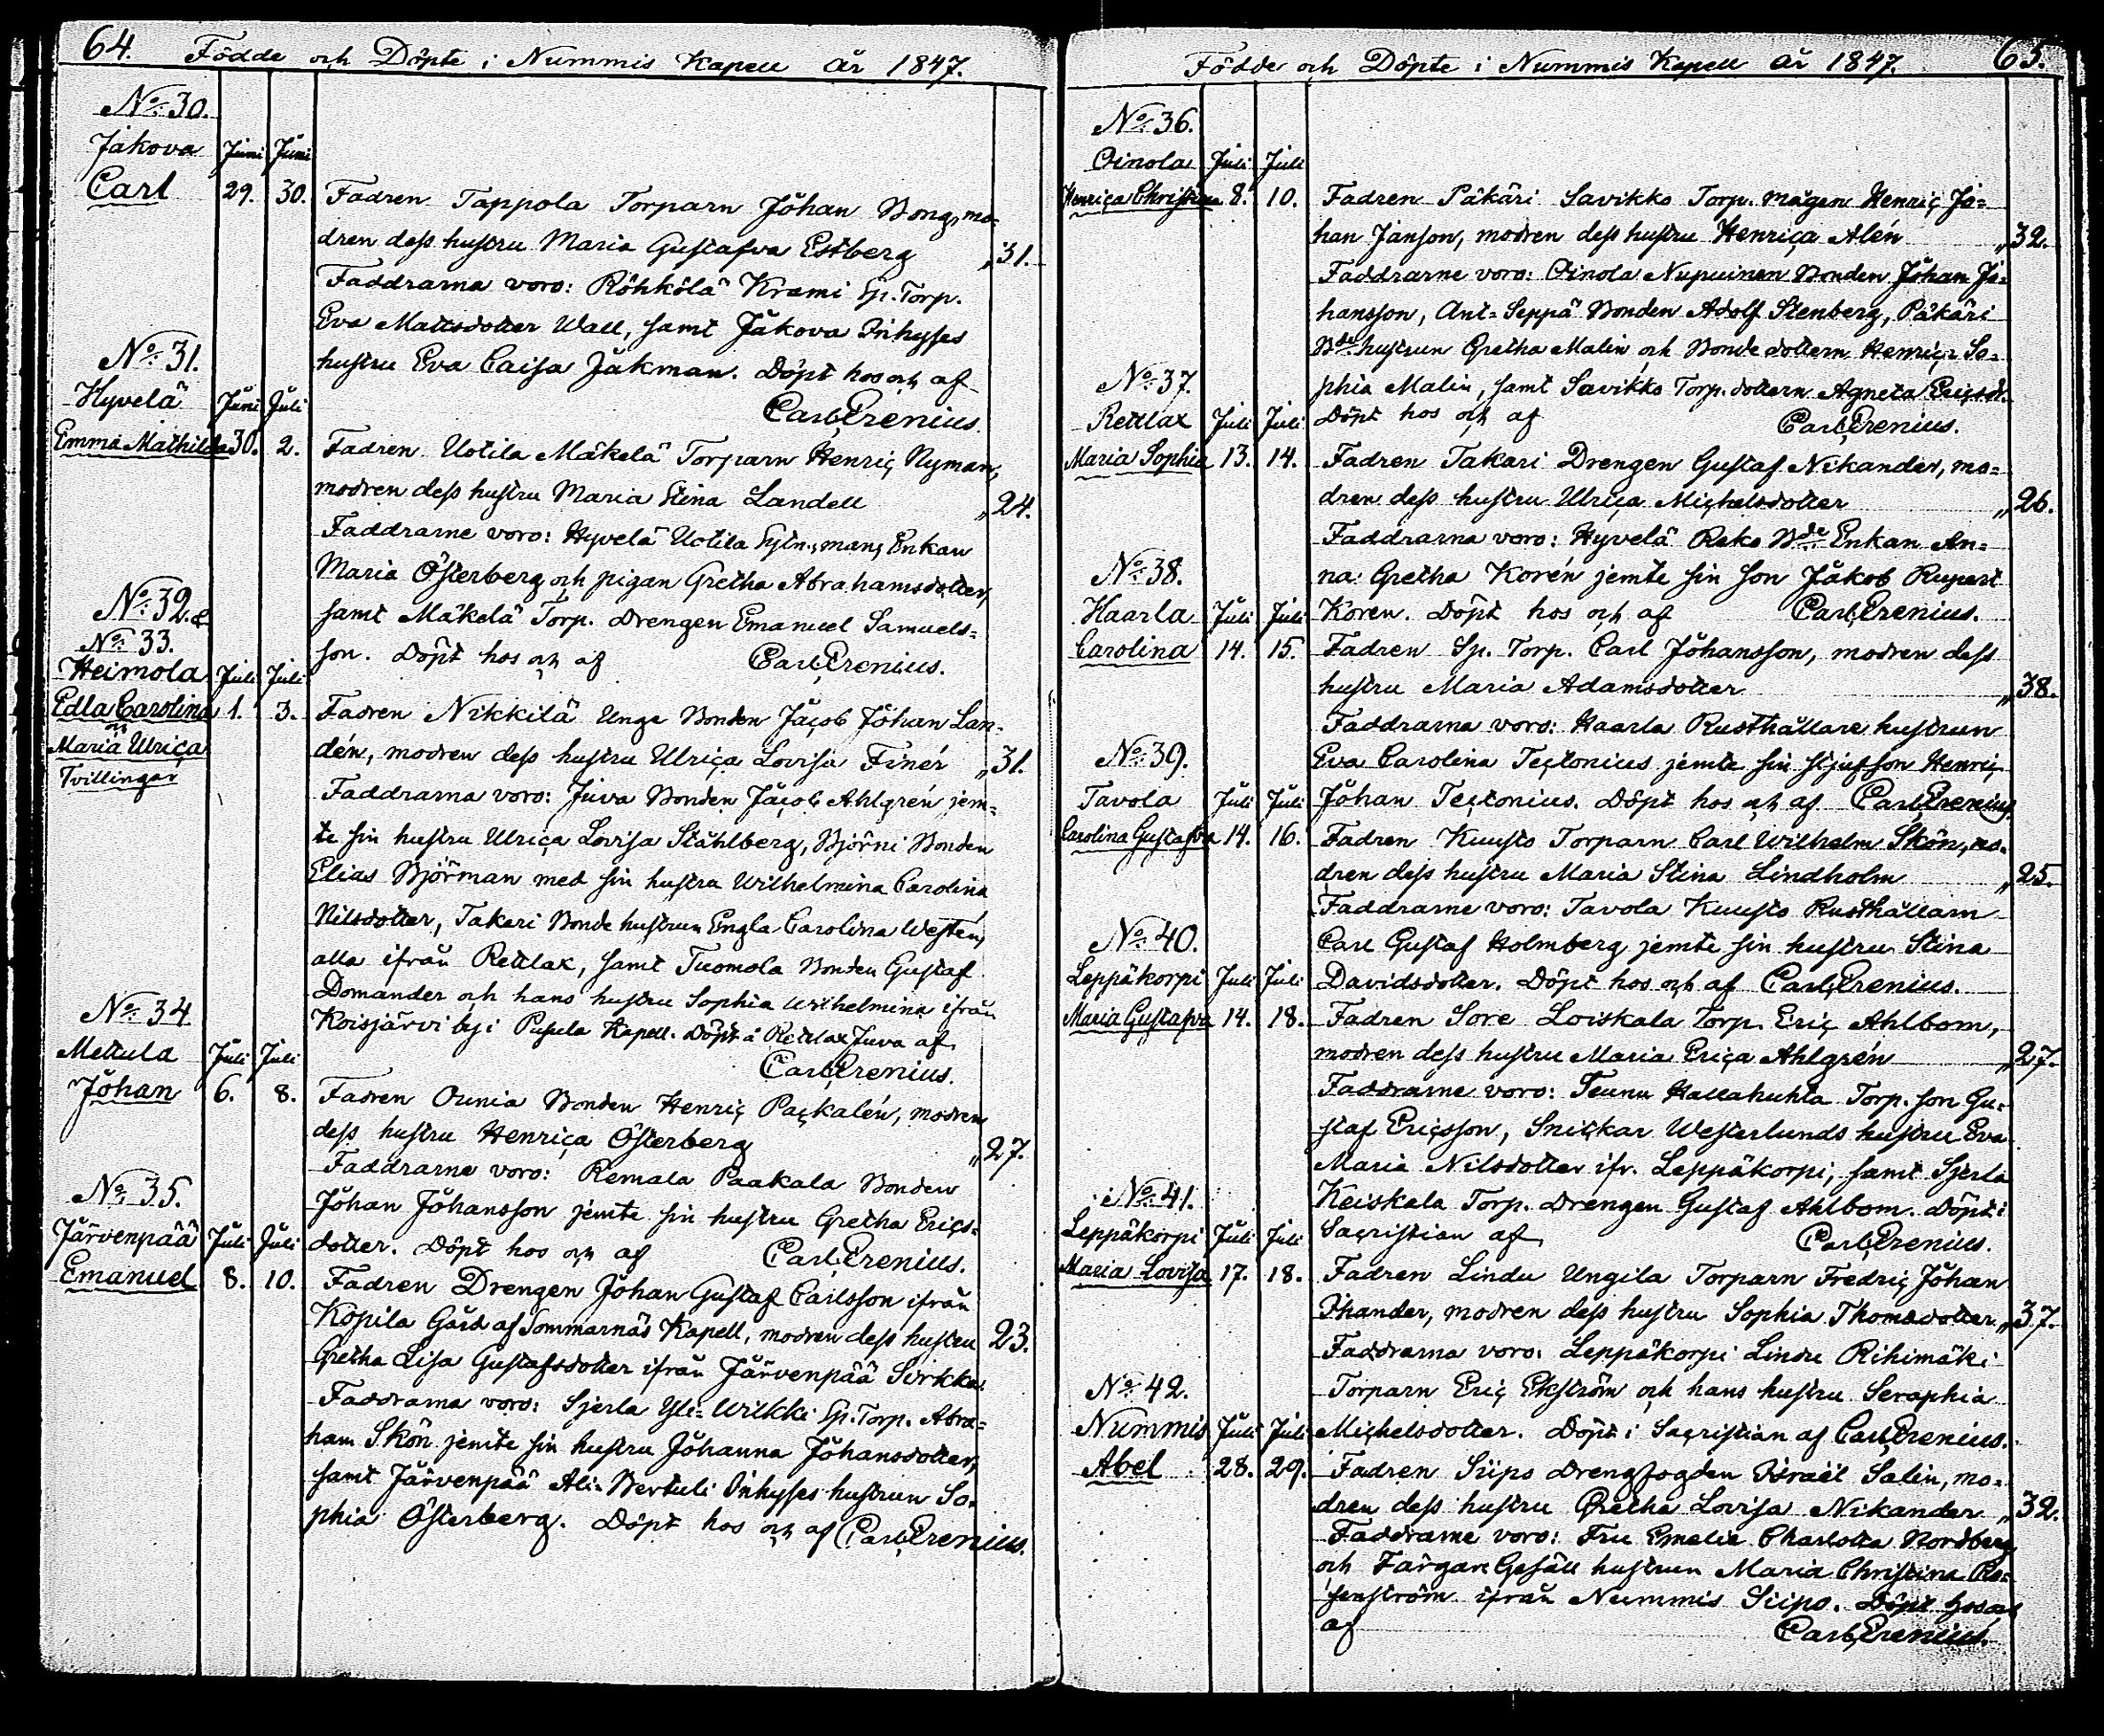 64. Födde och Döpte i Nummis Kapell År 1847.
No. 30.
Jakova Juni Juni
Carl 29. 30. Fadren Tappola Torparn Johan Bong, mo-
dren dess hustru Maria Gustafva Estberg „31.
Faddrarna voro: Röhkölä Krami Sp. Torp.
Eva Mattsdotter Wall, samt Jakova Inhyses
hustru Eva Caisa Jakman. Döpt hos och af
Carl Grenius.
No. 31.
Hyvelä Juni Juli
Emma Mathilda 30. 2. Fadren Uotila Mäkelä Torparn Henric Nyman,
modren dess hustru Maria Stina Landell „24.
Faddrarne voro: Hyvelä Uotila Enkan
Maria Österberg och pigan Gretha Abrahamsdotter,
samt Mäkelä Torp. Drengen Emanuel Samuels-
son. Döpt hos och af Carl Grenius.
No. 32. &
No. 33.
Heimola Juli Juli
Edla Carolina 1. 3. Fadren Nikkilä Unge Bonden Jacob Johan Lan-
och
Maria Ulrica dén, modren dess hustru Ulrica Lovisa Finér „31.
Tvillingar
Faddrarna voro: Juva Bonden Jacob Ahlgrén jem-
te sin hustru Ulrica Lovisa Ståhlberg, Björni Bonden
Elias Björman med sin hustru Wilhelmina Carolina
Nilsdotter, Takari Bonde hustrun Engla Carolina Westen,
alla ifrån Retlax, samt Tuomola Bonden Gustaf
Domander och hans hustru Sophia Wilhelmina ifrån
Koisjärvi by i Pusula Kapell. Döpt å Retlax Juva af
Carl Grenius.
No. 34.
Mettula Juli Juli
Johan 6. 8. Fadren Ounia Bonden Henric Packalén, modren
dess hustru Henrica Österberg „27.
Faddrarne voro: Remala Paakala Bonden
Johan Johansson jemte sin hustru Gretha Erics-
dotter. Döpt hos och af Carl Grenius.
No. 35.
Järvenpää Juli Juli
Emanuel 8. 10. Fadren Drengen Johan Gustaf Carlsson ifrån
Kopila Gård af Sommarnäs Kapell, modren dess hustru 23.
Gretha Lisa Gustafsdotter ifrån Järvenpää Sirkka
Faddrarna voro: Sjerla Yli-Wilkki Sp. Torp. Abra-
ham Skön jemte sin hustru Johanna Johansdotter,
samt Järvenpää Ali-Bertuli Inhyses hustrun So-
phia Österberg. Döpt hos och af Carl Grenius.
Födde och Döpte i Nummis Kapell År 1847. 65.
No. 36.
Oinola Juli Juli
Henrica Christina 8. 10. Fadren Päkäri Savikko Torp. mågen Henric Jo-
han Janson, modren dess hustru Henrica Alén „32.
Faddrarne voro: Oinola Nupuinen Bonden Johan Jo-
hansson, Ant-Seppä Bonden Adolf Stenberg, Päkäri
Bde hustrun Gretha Malin och Bonde dottern Henrica So-
phia Malin, samt Savikko Torp. dottern Agneta Ericsdr.
Döpt hos och af Carl Grenius.
No. 37.
Retlax Juli Juli
Maria Sophia 13. 14. Fadren Takari Drengen Gustaf Nikander, mo-
dren dess hustru Ulrica Michelsdotter „26.
Faddrarna voro: Hyvelä Reko Bde Enkan An-
na Gretha Korén jemte sin son Jakob Rupert
Koren. Döpt hos och af Carl Grenius.
No. 38.
Haarla Juli Juli
Carolina 14. 15. Fadren Sp. Torp. Carl Johansson, modren dess
hustru Maria Adamsdotter „38.
Faddrarna voro: Haarla Rusthållare hustrun
Eva Carolina Tectonius jemte sin stjufson Henric
Johan Tectonius. Döpt hos och af Carl Grenius.
No. 39.
Tavola Juli Juli
Carolina Gustafva 14. 16. Fadren Kuusto Torparn Carl Wilhelm Skön, mo-
dren dess hustru Maria Stina Lindholm „25.
Faddrarne voro: Tavola Kuusto Rusthållarn
Carl Gustaf Holmberg jemte sin hustru Stina
Davidsdotter. Döpt hos och af Carl Grenius.
No. 40.
Leppäkorpi Juli Juli
Maria Gustafva 14. 18. Fadren Sore Loiskala Torp. Eric Ahlbom,
modren dess hustru Maria Erica Ahlgrén „27.
Faddrarne voro: Teunu Hallahuhta Torp. son Gu-
staf Ericsson, Snickar Westerlunds hustru Eva
Maria Nilsdotter ifr. Leppäkorpi, samt Sjerla
Keiskala Torp. Drengen Gustaf Ahlbom. Döpt i
Sacristian af Carl Grenius.
No. 41.
Leppäkorpi Juli Juli
Maria Lovisa 17. 18. Fadren Lindu Ungila Torparn Fredric Johan
Ihander, modren dess hustru Sophia Thomædotter „37.
Faddrarna voro: Leppäkorpi Lindu Rihimäki
Torparn Eric Ekström och hans hustru Seraphia
Michelsdotter. Döpt i Sacristian af Carl Grenius.
No. 42.
Nummis Juli Juli
Abel 28. 29. Fadren Siipo Drengfogden Israël Salin, mo-
dren dess hustru Gretha Lovisa Nikander „32.
Faddrarne voro: Fru Emelie Charlotta Nordberg
och Färgare Gesäll hustrun Maria Christina Ro-
senström ifrån Nummis Siipo. Döpt hos och
af Carl Grenius.